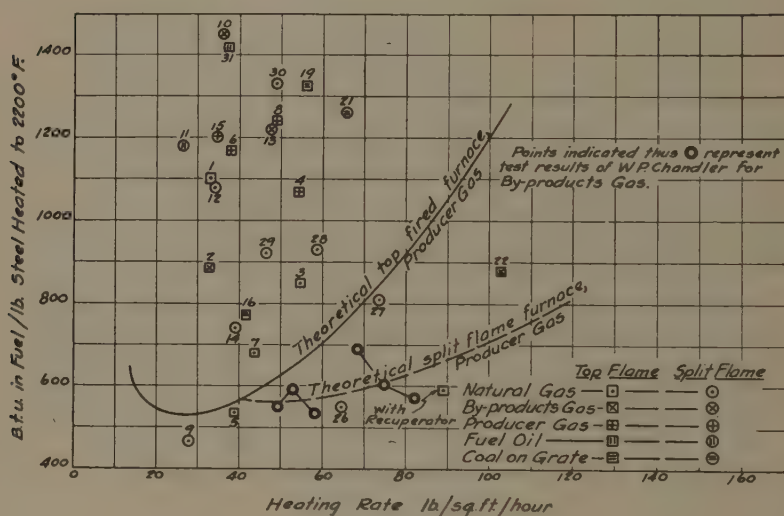 B.t.u. in Fuel/lb. Steel Heated to 2200°F.
1400
1200
1000
800
600
400
0
20
40
60
80
100
120
140
160
Heating Rate lb./sq.ft/hour
10
31
30
19
8
21
15
11
6
13
1
12
4
29
28
2
3
22
16
27
14
7
5
9
26
Theoretical top fired furnace,
Producer Gas
Theoretical split flame furnace,
Producer Gas
with
Recuperator
Points indicated thus O represent
test results of W.P. Chandler for
By-products Gas.
Top Flame Split Flame
Natural Gas
By-products Gas
Producer Gas
Fuel Oil
Coal on Grate